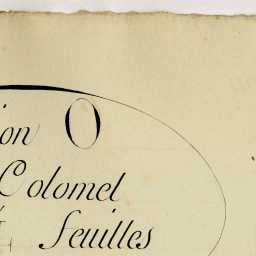 ion O
Colomel
feuilles